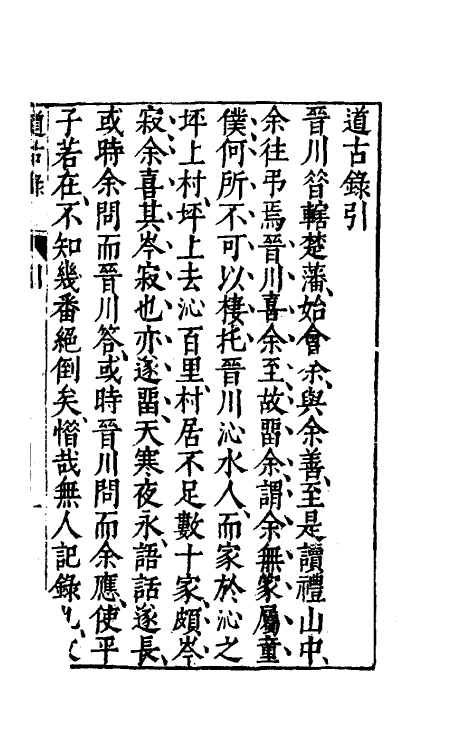 道古錄引
晉川管轄楚藩、始會余、與余善、至是讀禮山中、
余往弔焉、晉川喜余至、故畱余、謂余無家屬童
僕、何所不可以棲托、晉川沁水人、而家於沁之
坪上村、坪上去沁百里、村居不足數十家、頗岑
寂、余喜其岑寂也、亦遂畱、天寒夜永、語話遂長、
或時余問而晉川答、或時晉川問而余應、使平
子若在、不知幾番絕倒矣、惜哉無人記錄
道古錄
引
一